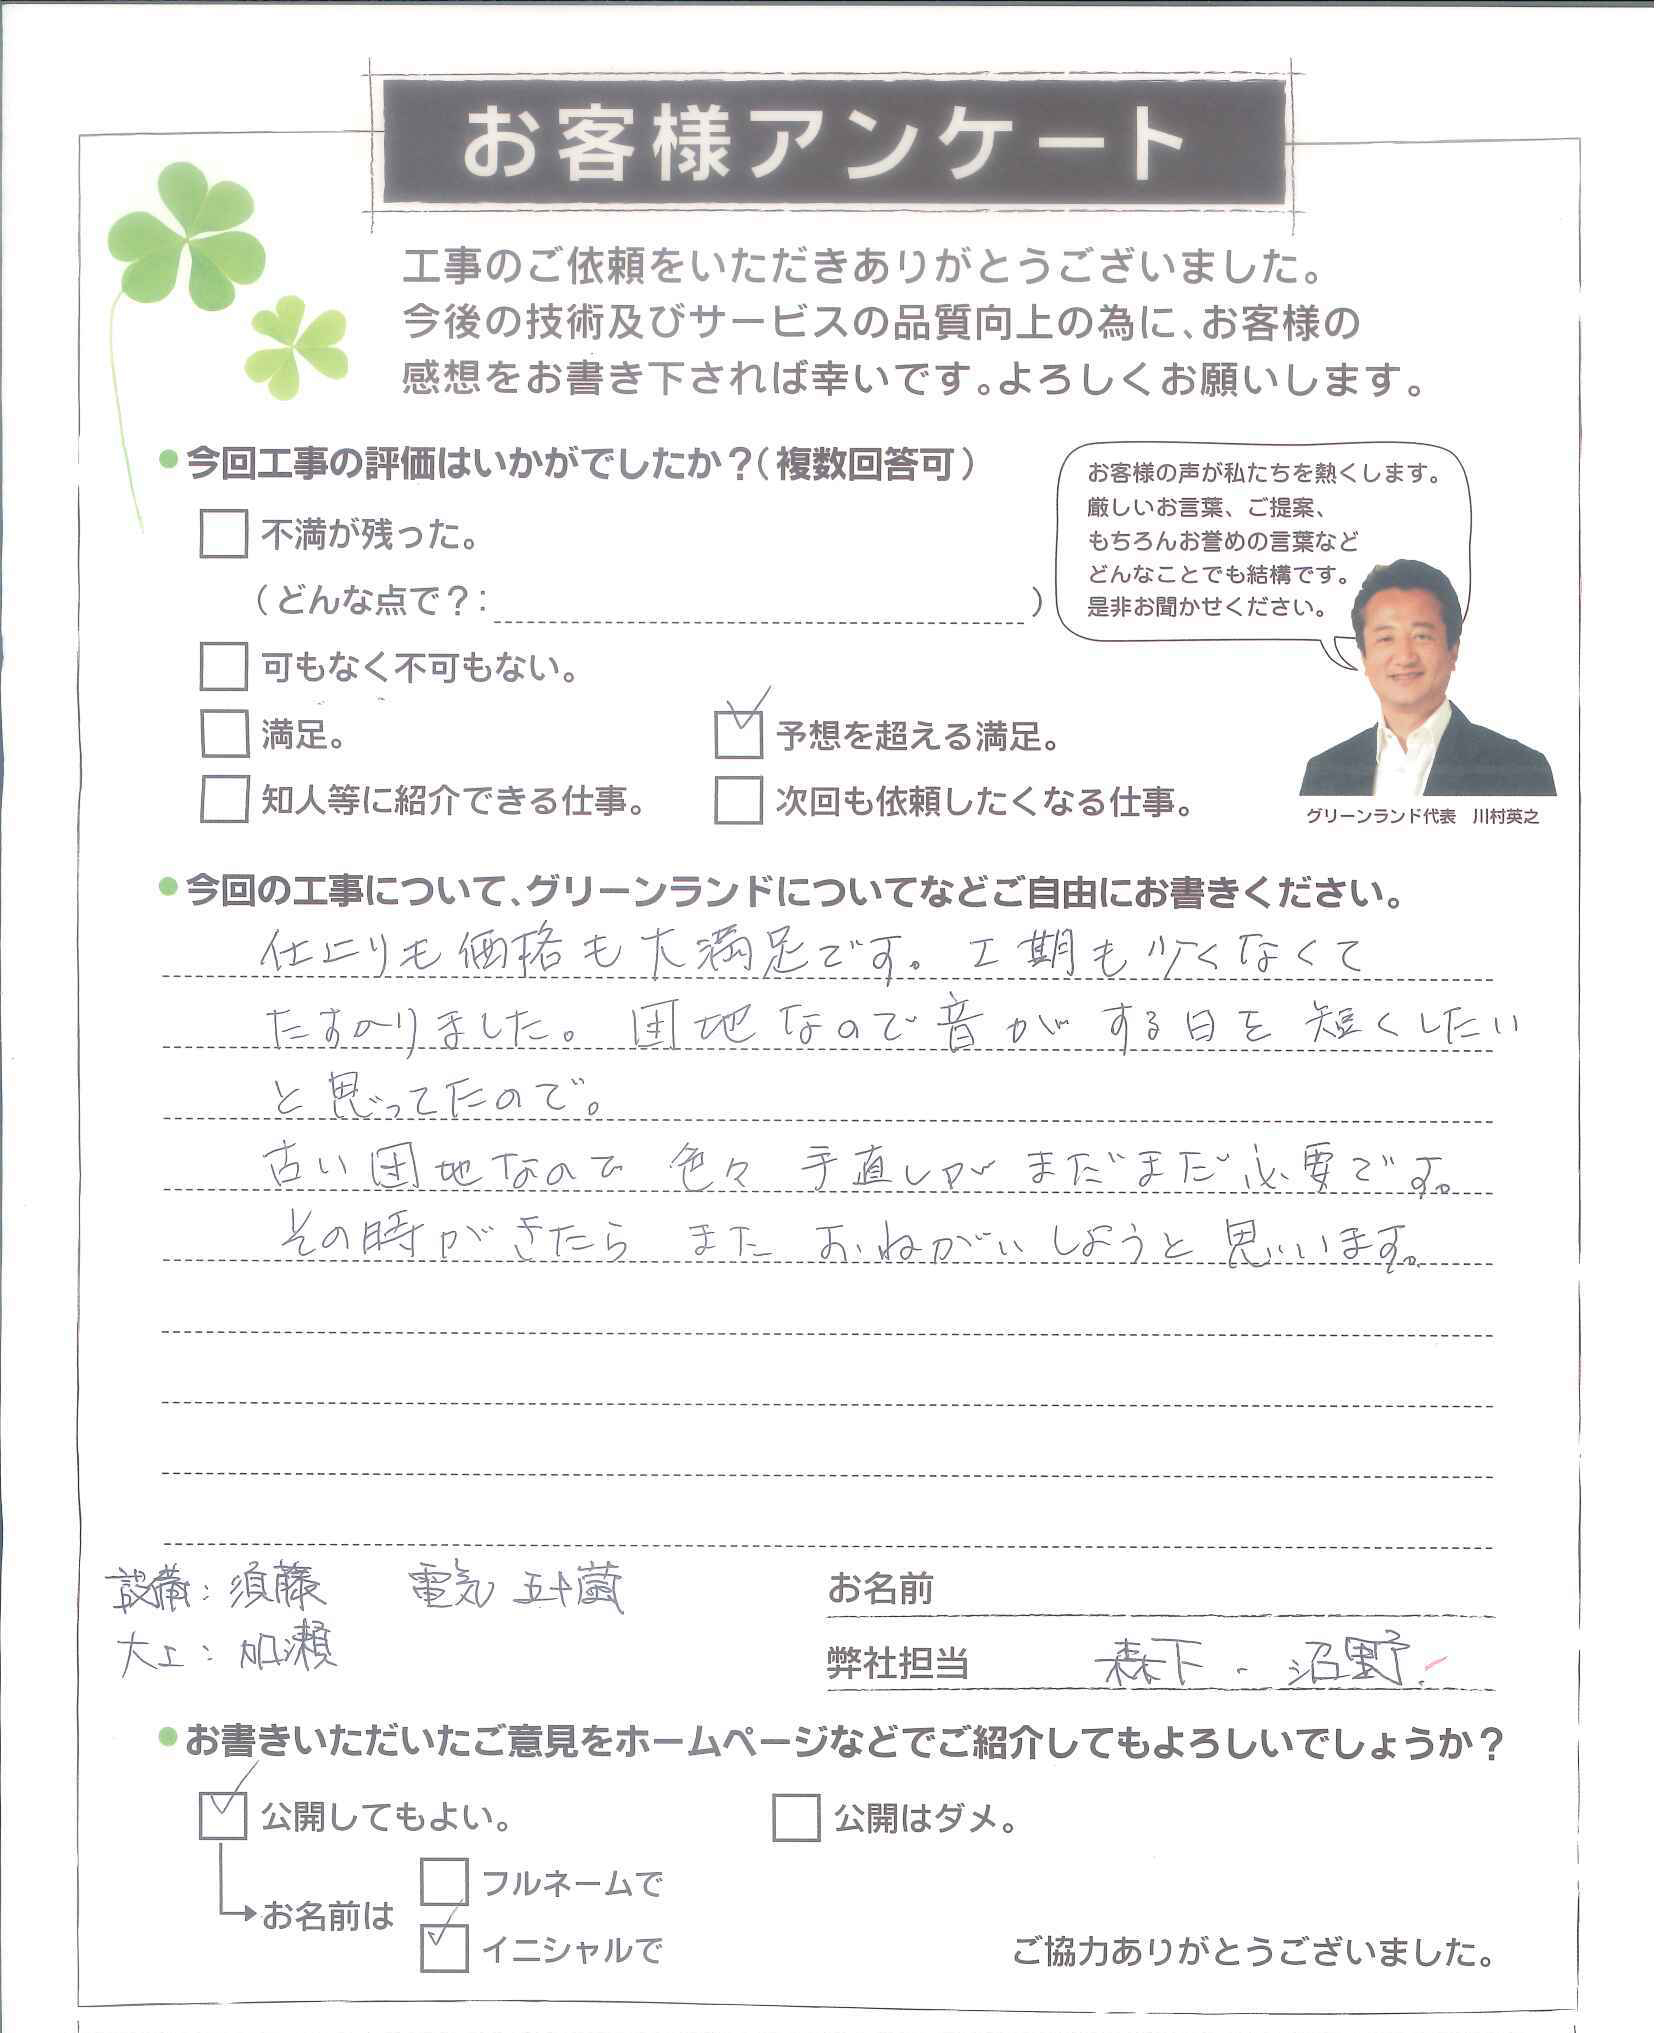 お客様アンケート
工事のご依頼をいただきありがとうございました。
今後の技術及びサービスの品質向上の為に、お客様の
感想をお書き下されば幸いです。よろしくお願いします。
今回工事の評価はいかがでしたか？（複数回答可）
不満が残った。
（どんな点で？： ）
可もなく不可もない。
満足。
予想を超える満足。
知人等に紹介できる仕事。
次回も依頼したくなる仕事。
お客様の声が私たちを熱くします。
厳しいお言葉、ご提案、
もちろんお誉めの言葉など
どんなことでも結構です。
是非お聞かせください。
グリーンランド代表 川村英之
今回の工事について、グリーンランドについてなどご自由にお書きください。
仕上りも価格も大満足です。工期も少くなくて
たすかりました。団地なので音がする日を短くしたい
と思ってたので。
古い団地なので色々手直しがまだまだ必要です。
その時がきたらまたおねがいしようと思います。
設備：須藤 電気 五十嵐
大工：加瀬
お名前
弊社担当 森下・沼野
お書きいただいたご意見をホームページなどでご紹介してもよろしいでしょうか？
公開してもよい。
公開はダメ。
お名前は
フルネームで
イニシャルで
ご協力ありがとうございました。